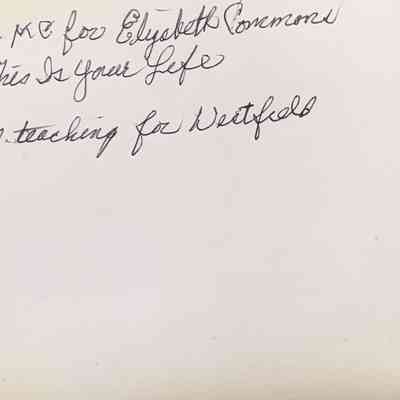 MC for Elizabeth Commons
This Is Your Life
teaching for Westfield